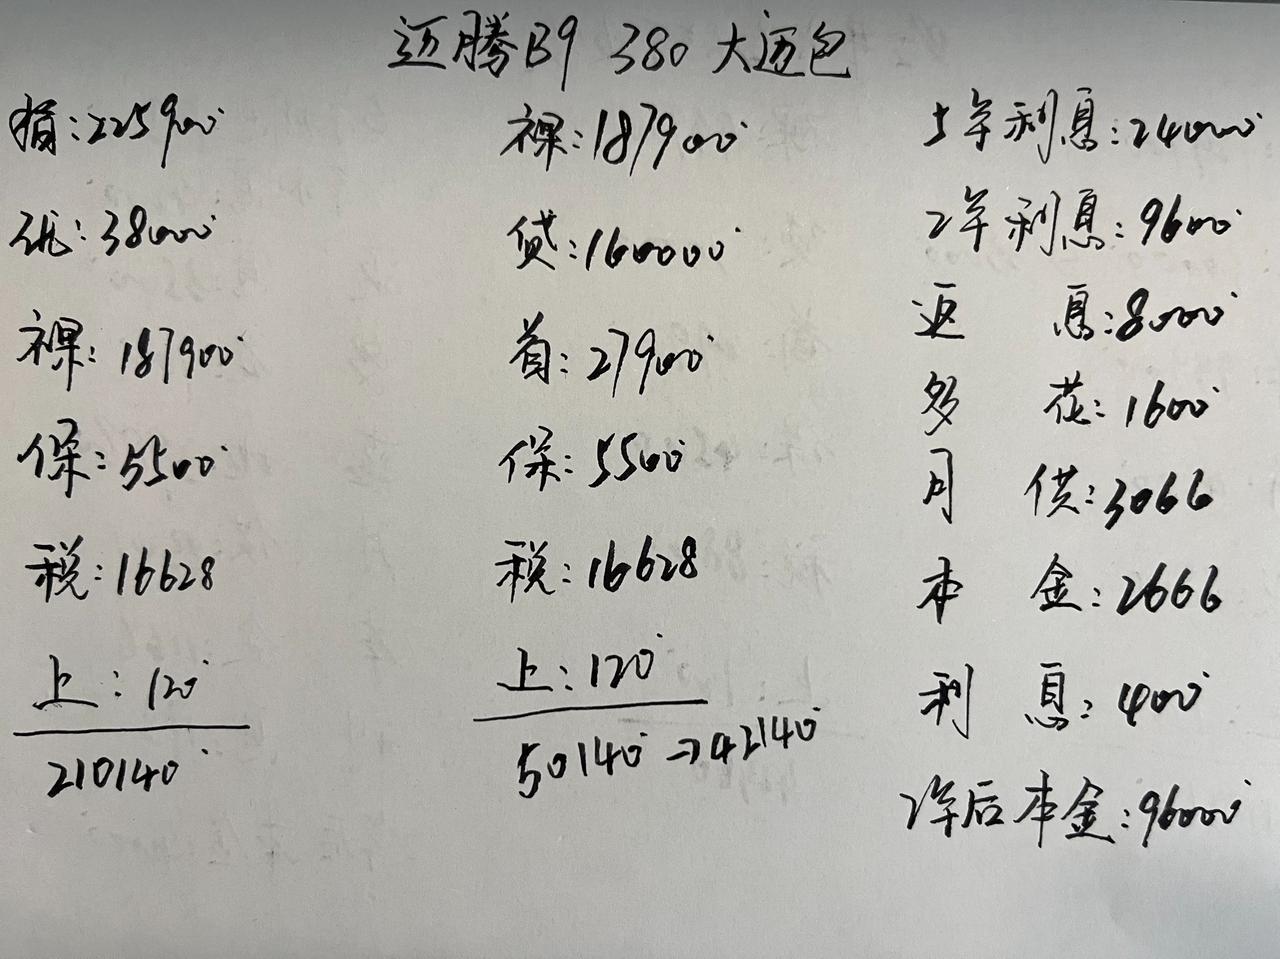 迈腾B9 380 大迈包
指:225900
优:38000
裸:187900
保:5500
税:16628
上:120
210140
裸:187900
贷:160000
首:27900
保:5500
税:16628
上:120
50140→42140
5年利息:24000
2年利息:9600
返息:8000
多花:1600
月供:3066
本金:2666
利息:400
2年后本金:96000